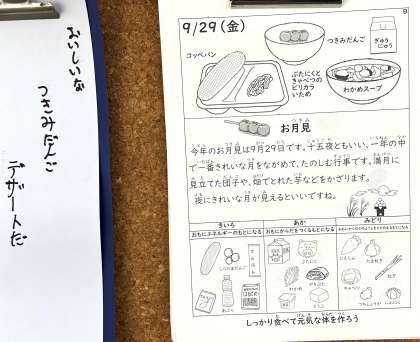 おいしいな
つきみだんご
デザートだ
9/29(金)
つきみだんご
ぎゅうにゅう
コッペパン
ぶたにくと
きゃべつの
ピリカラ
いため
わかめスープ
お月見
今年のお月見は9月29日です。十五夜ともいい、一年の中
で一番きれいな月をながめて、たのしむ行事です。満月に
見立てた団子や、畑でとれた芋などをかざります。
夜にきれいな月が見えるといいですね。
きいろ
おもにエネルギーのもとになる
しらたまだんご
あぶら
あか
おもにからだをつくるもとになる
ぶたにく
わかめ
とうふ
みどり
にんじん
たまねぎ
キャベツ
ねぎ
にんにく
しっかり食べて元気な体を作ろう